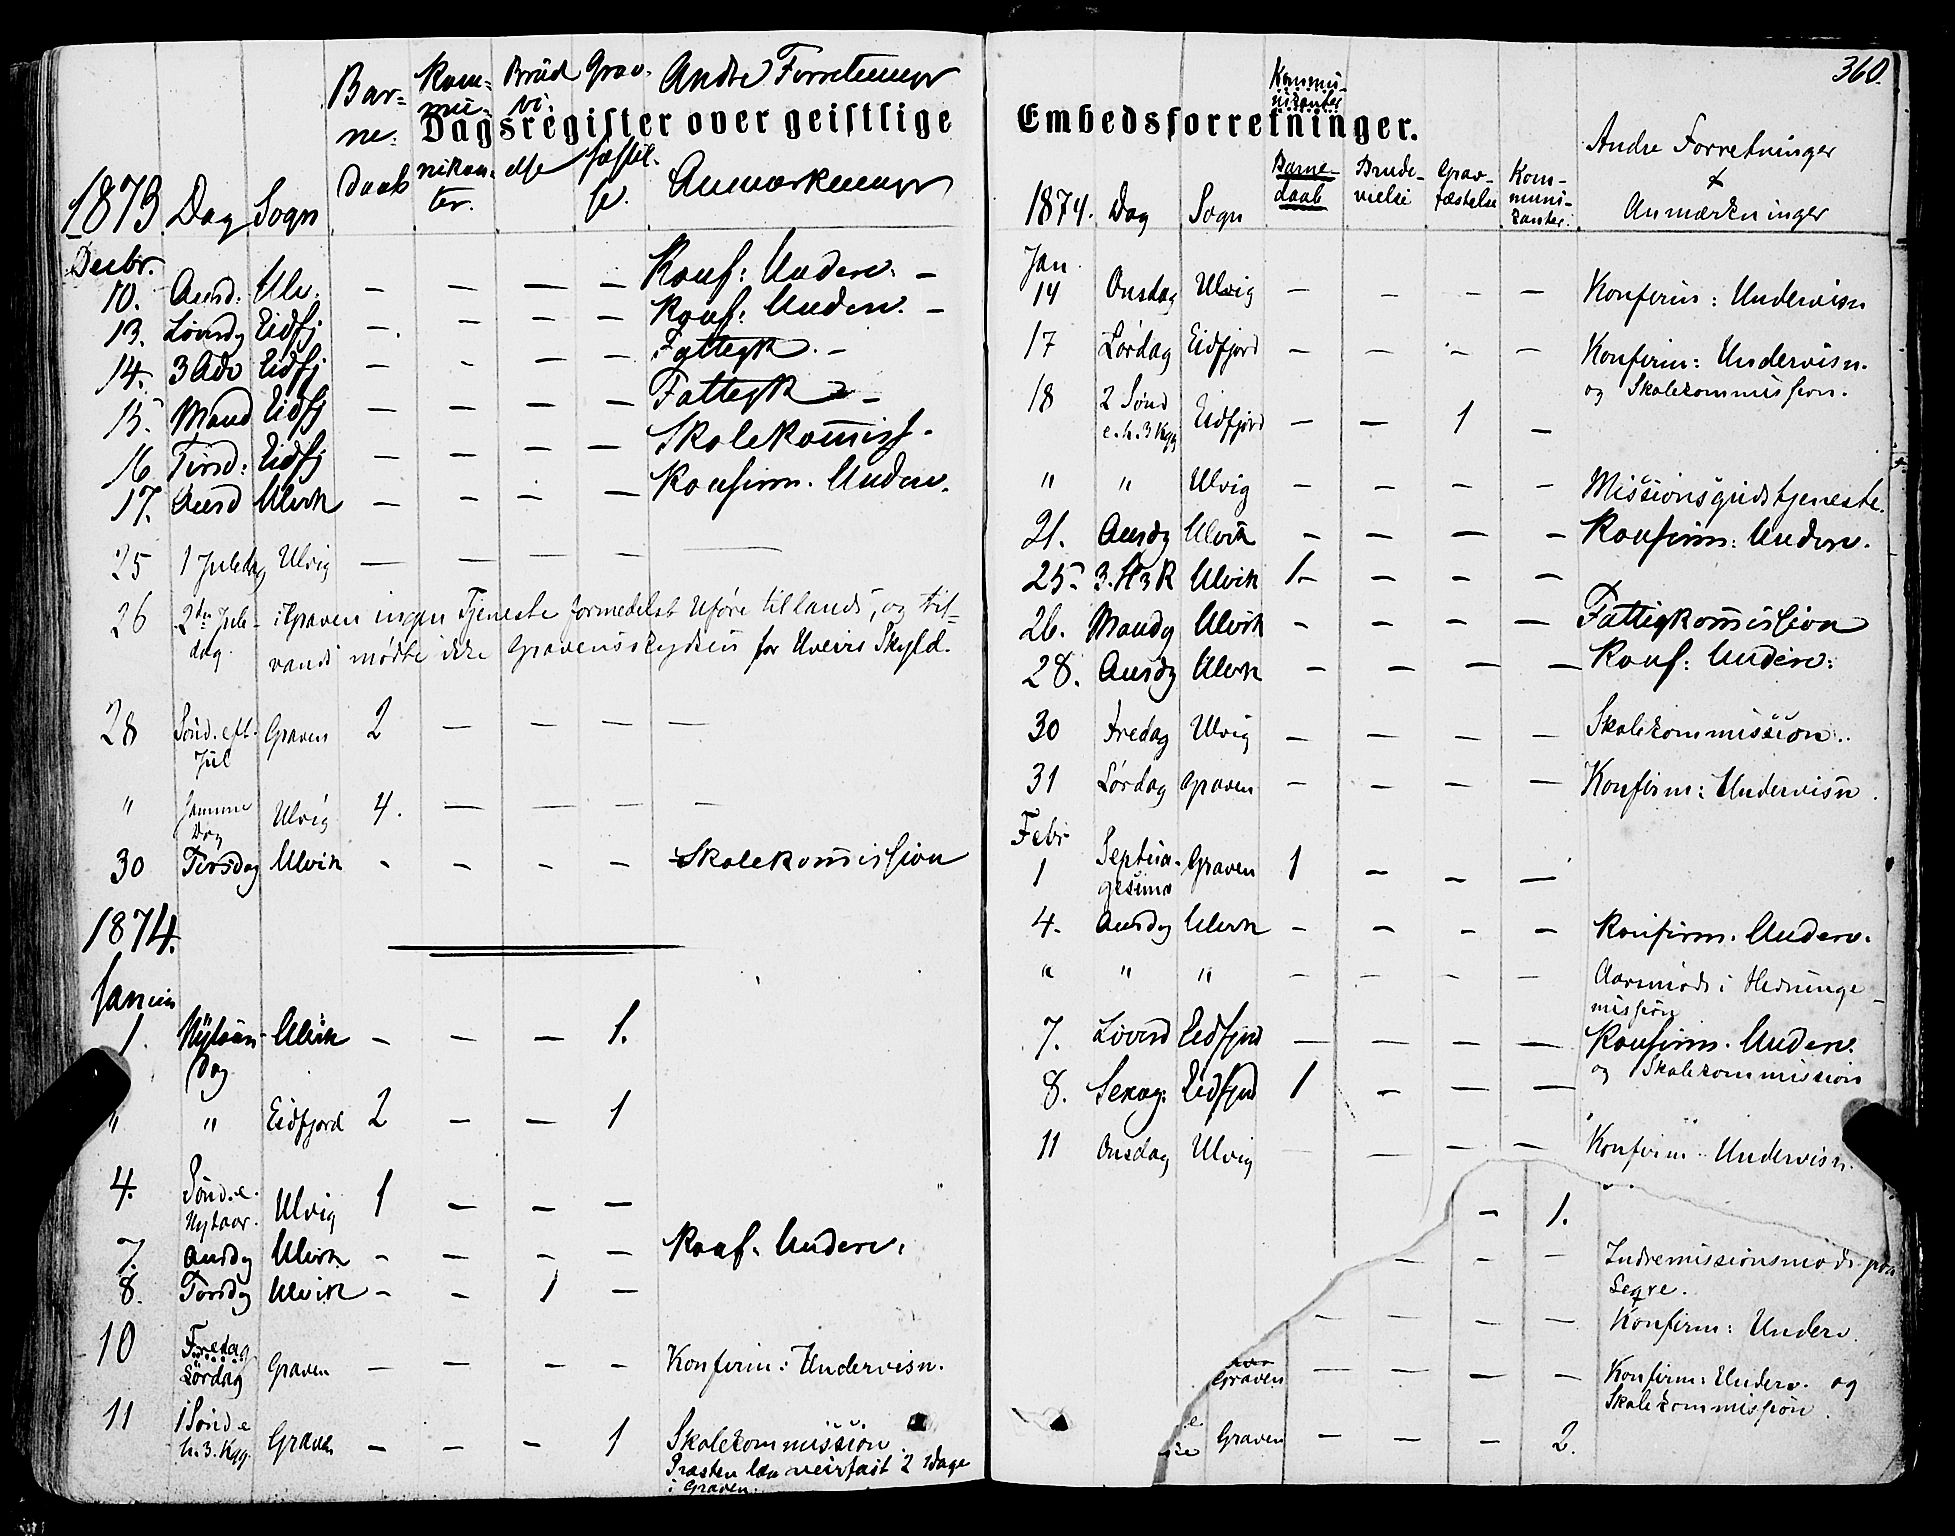 Dagsregister over geistlige
1873 Dag Sogn Barne-Daab Kommunikanter Brudvielse Gravfæstelse Andre Forretninger Anmærkninger
Decbr.
10. Onsd: Ulv. — — — — Konf: Underv. —
13. Löverdg Eidfj — — — — Konf: Underv. —
14. 3 Adv Eidfj — — — — Fattigk. —
15. Mand Eidfj — — — — Fattigk —
16. Tirsd: Eidfj — — — — Skolekomiss.
17. Onsd Ulvik — — — — Konfirm. Underv.
25 1 Juledag Ulvig — — — — —
26 2den Jule- i Graven ingen Tjeneste formedelst Uföre tillands, og til-
dag. vands mödte ikke Gravensskydsen for Uveirs Skyld.
28 Sönd. eft. Graven 2 — — — —
Jul
" Samme Ulvig 4. — — — —
Dag
30 Tirsdag Ulvik - - - - Skolekomission
1874.
Januar
1. Nytaars- Ulvik — — — 1.
Dag
" " Eidfjord 2 — — 1
4. Sönd. e. Ulvig 1 — — —
Nytaar.
7. Onsdg Ulvik - - - — Konf. Underv.
8. Torsdg Ulvik — - 1 —
10 Fredag
Lördag Graven — — — — Konfirm: Undervisn.
11 1 Sönd e Graven — — — 1 Skolekommission
h. 3. Kgg. Præsten laa veirfast 2 Dage
i Graven.
360.
Embedsforretninger.
1874. Dag Sogn Kommunikanter Barnedaab Brudevielse Gravfæstelse Kommunikanter. Andre Forretninger + Anmærkninger
Jan.
14 Onsdag Ulvig — — — — Konfirm: Undervisn
17 Lördag Eidfjord — — — — Konfirm: Undervisn.
og Skolekommission.
18 2 Sönd Eidfjord — — 1 —
e. h. 3 Kgg
" " Ulvig — — — — Missionsgudstjeneste.
21. Onsdg Ulvik — — — — Konfirm: Underv.
25. 3. H3K Ulvik 1 — — —
26. Mandg Ulvik — — — — Fattigkomission
28. Onsdg Ulvik — — — — Konf: Underv:
30 Fredag Ulvig — — — — Skolekommission.
31 Lördag Graven — — — — Konfirm: Undervisn.
Febr
1 Septua- Graven 1 — — —
gesima
4. Onsdg Ulvik — — — — Konfirm. Underv.
" " " — — — — Aarsmöde i Hedninge-
mission
7. Löverd Eidfjord — — — — Konfirm. Underv.
og Skolekommission
8. Sexag: Eidfjord 1 — — —
11 Onsdag Ulvig — — — — Konfirm: Undervisn.
— 1.
— — — Indremissionsmöde paa
— — — — Konfirm: Underv.
Graven — — — — Konfirm: Underv. og
Skolekommission.
Graven — — — 2.